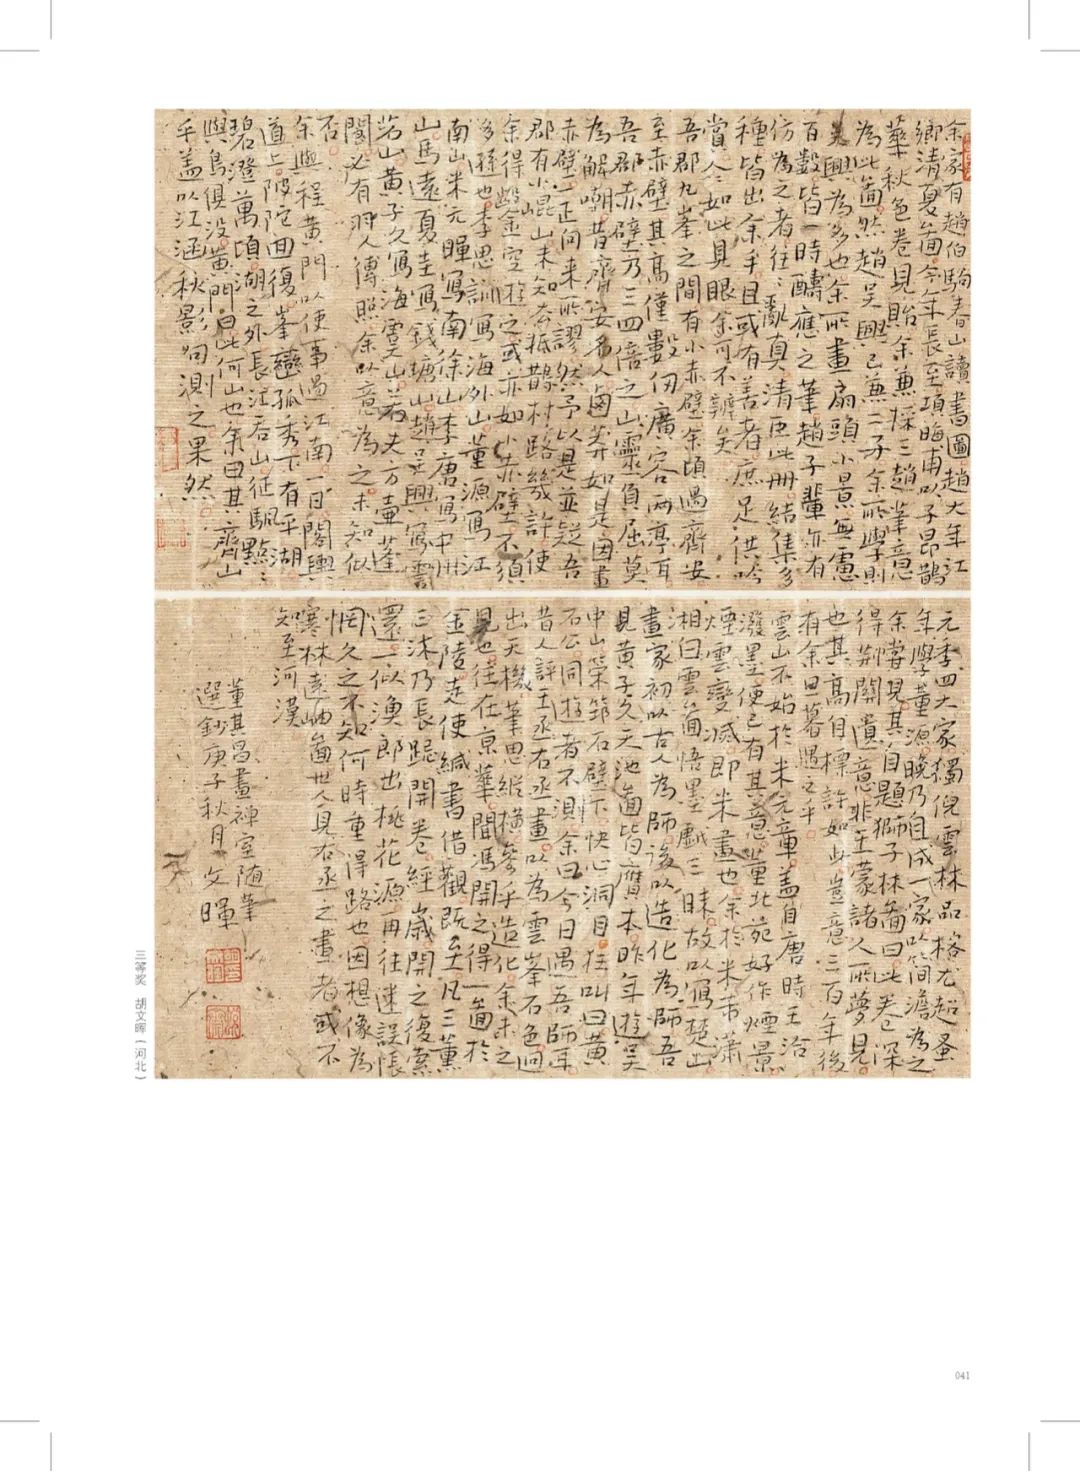 余家有趙伯駒春山讀書圖趙大年江
鄉清夏啚今年長至項晦甫以子昂鵲
華秋色卷見貽余兼採三趙筆意
為此啚然趙吳興已兼二子余所學則
吳興為多也余所畫扇頭小景無慮
百數皆一時酬應之筆趙子輩亦有
仿為之者往〻亂真清臣此冊結集多
種皆出余手且或有善者庶足供吟
賞人〻如此具眼余可不辨矣
吾郡九峯之間有小赤壁余頃過齊安
至赤壁其高僅數仞廣容兩亭耳
吾郡赤壁乃三四倍之山靈負屈莫
為解嘲昔齊安名人鹵莽如是因畫
赤壁一正向來所謬然予以是並疑吾
郡有小崐山未知抵鵲村路幾許使
余得金空遊之或亦如小赤壁不須
多遜也李思訓寫海外山董源寫江
南山米元暉寫南徐山李唐寫中州
山馬遠夏圭寫錢塘山趙吳興寫霅
苕山黃子久寫海虞山若夫方壺蓬
閬必有羽人傳照余以意為之未知似
否
余與程黃門以使事過江南一日閣輿
道上陂陀回復峯巒孤秀下有平湖
碧澄萬頃湖之外長江吞山征颿點〻
與鳥俱沒黃門曰此何山也余曰其齊山
乎蓋以江涵秋影句測之果然
元季四大家獨倪雲林品格尤超蚤
年學董源晚乃自成一家以簡澹為之
余嘗見其自題獅子林啚曰此卷深
得荊關遺意非王蒙諸人所夢見
也其高自標許如此豈意三百年後
有余旦暮遇之乎
雲山不始於米元章蓋自唐時王洽
潑墨便已有其意董北苑好作煙景
煙雲變滅即米畫也余於米芾瀟
湘白雲啚悟墨戲三昧故以寫楚山
畫家初以古人為師後以造化為師吾
見黃子久天池啚皆贋本昨年遊吳
中山策筇石壁下快心洞目狂叫曰黃
石公同遊者不測余曰今日遇吾師耳
昔人評王丞右丞畫以為雲峯石色迥
出天機筆思縱橫參乎造化余未之
見也往在京華聞馮開之得一啚於
金陵走使緘書借觀既至凡三薰
三沐乃長跽開卷經歲開之復索
還一似漁郎出桃花源再往迷誤悵
惘久之不知何時重得路也因想像為
寒林遠岫啚世人見右丞之畫者或不
知至河漢
董其昌畫禪室隨筆
選鈔庚子秋月文暉
三等奖 胡文晖（河北）
041